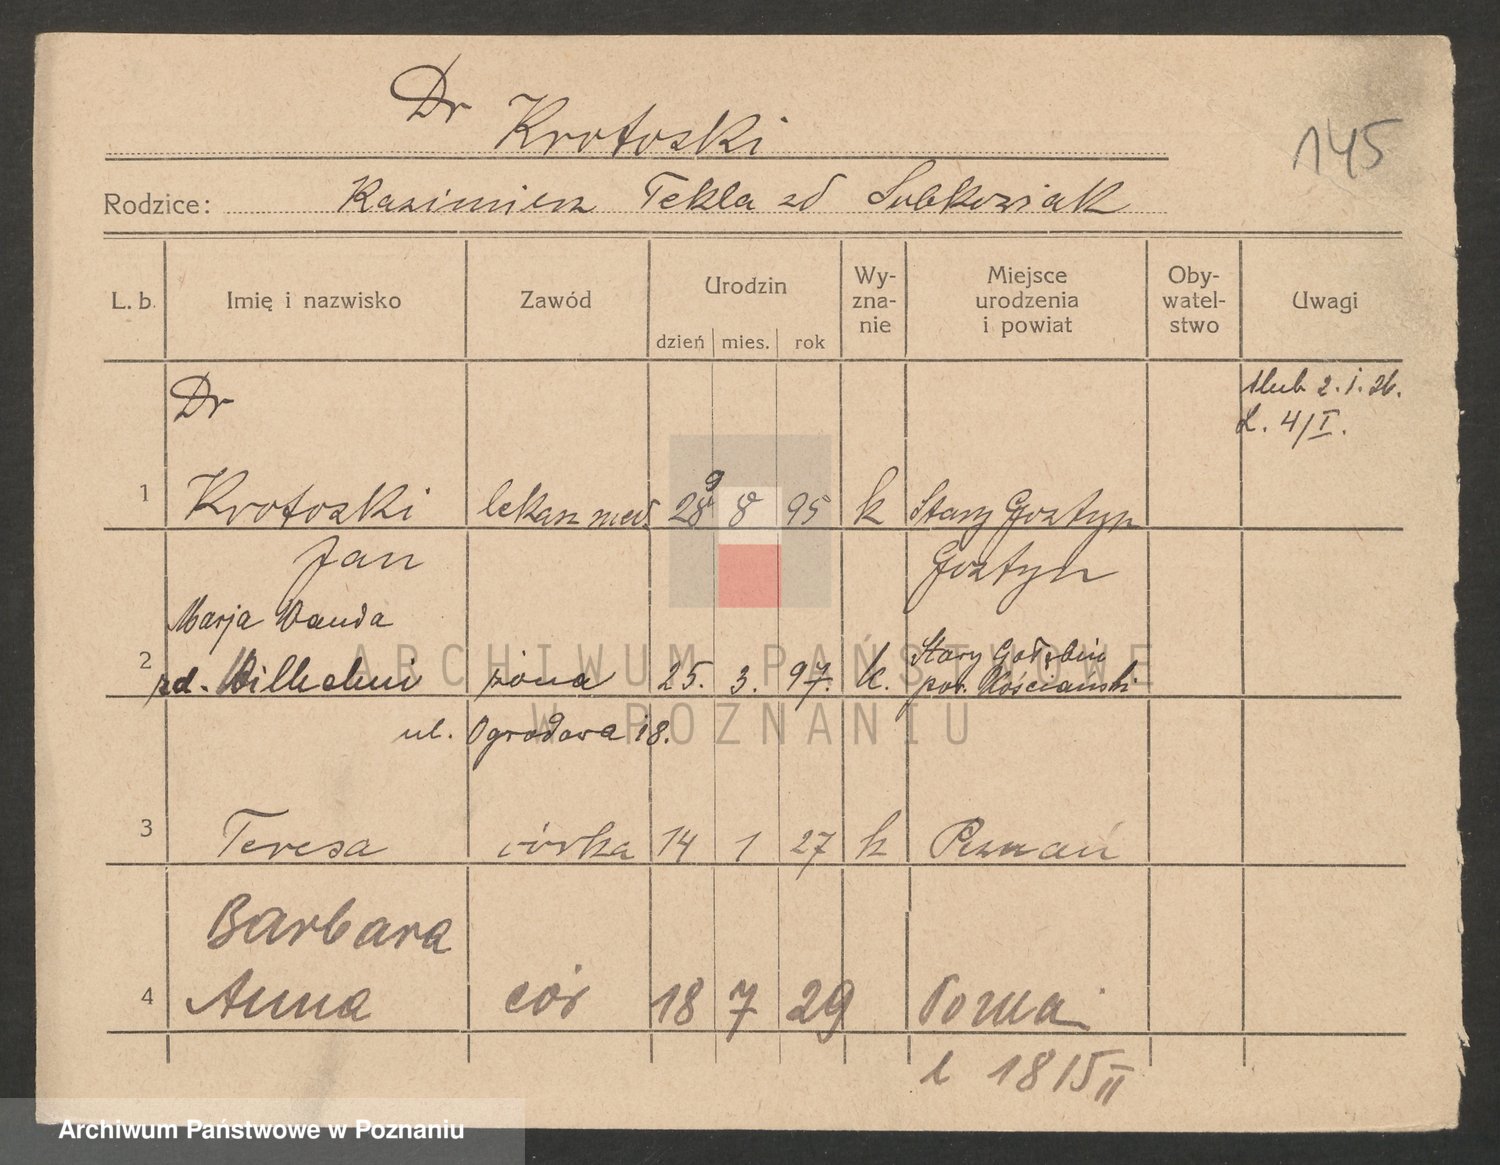 Dr
Krotoski
145
Rodzice: Kazimierz Tekla zd Sobkowiak
L. b. Imię i nazwisko Zawód Urodzin dzień mies. rok Wy-zna-nie Miejsce urodzenia i powiat Oby-watel-stwo Uwagi
Dr
ślub 2. 1. 26.
L. 4/I.
1 Krotoski lekarz med. 28 9 8 95 k Stary Gostyn
Jan Gostyn
Marja Wanda
2 zd. Wilhelmi żona 25. 3. 97. k. Stary Gołębin
pow. Kościański
ul. Ogrodowa 18.
3 Teresa córka 14 1 27 k Poznań
Barbara
4 Anna cór 18 7 29 Pozna
L 1815 II
ARCHIWUM PAŃSTWOWE
W POZNANIU
Archiwum Państwowe w Poznaniu